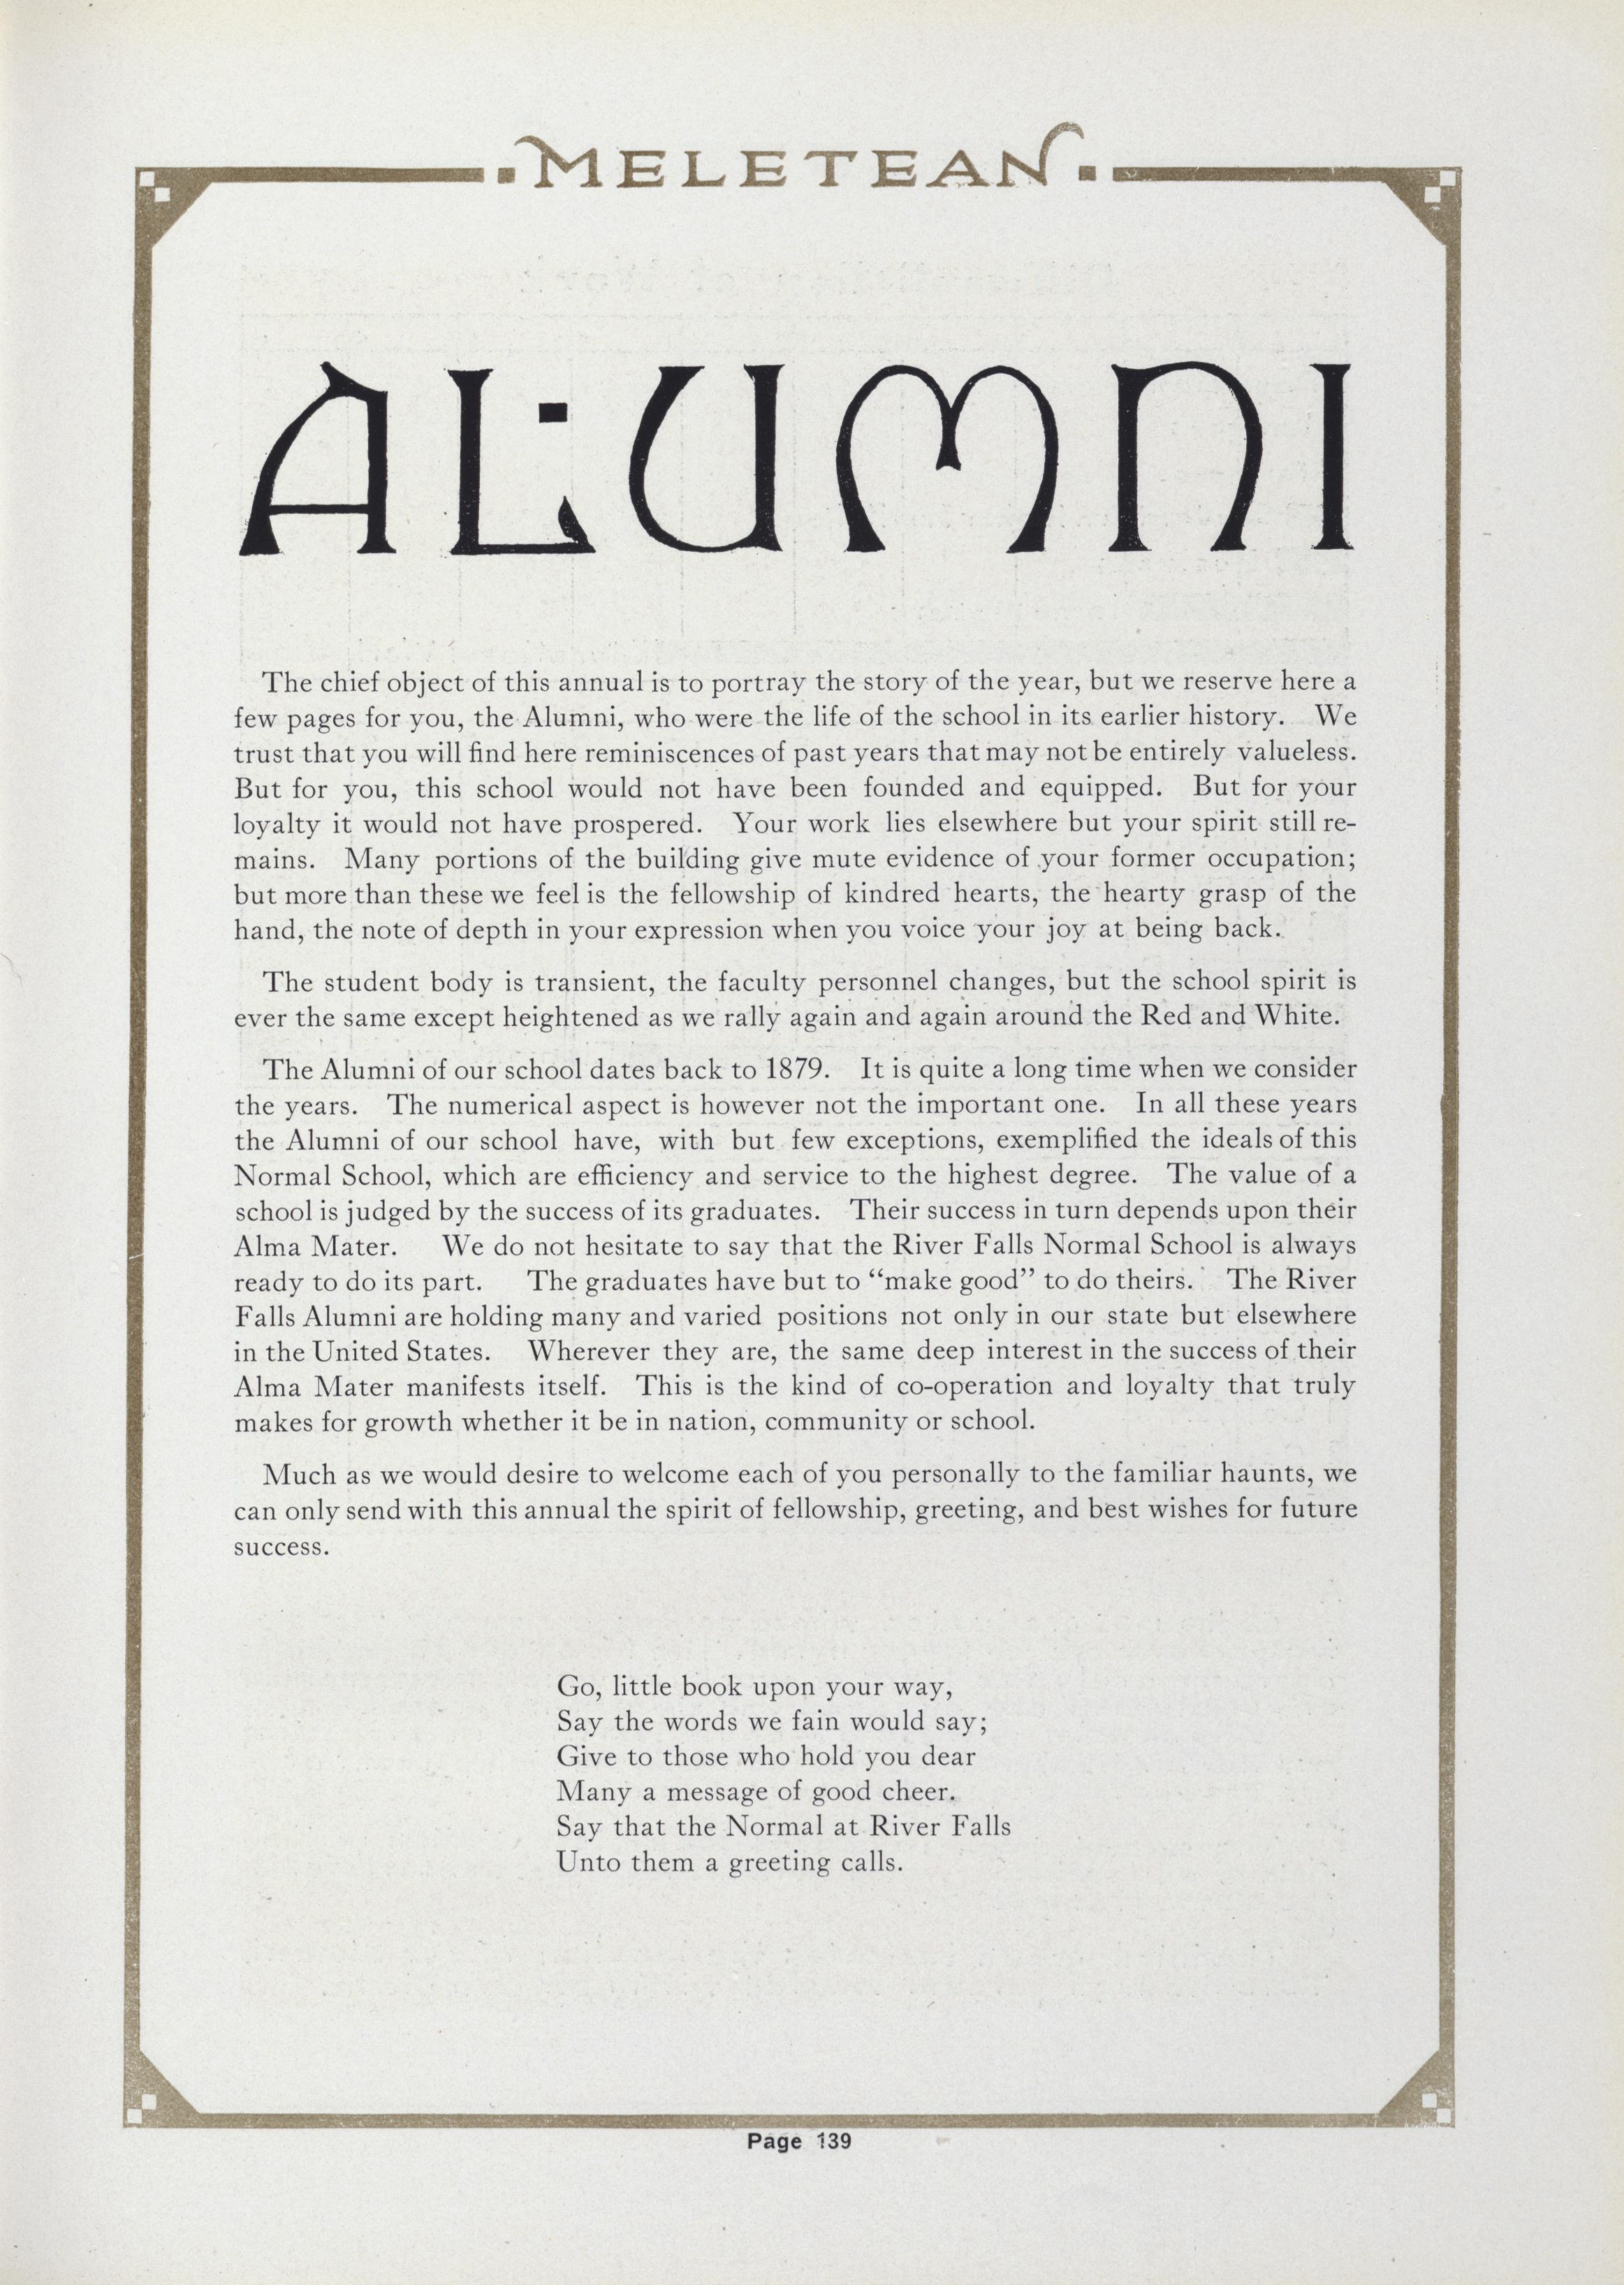 MELETEAN
ALUMNI
The chief object of this annual is to portray the story of the year, but we reserve here a
few pages for you, the Alumni, who were the life of the school in its earlier history. We
trust that you will find here reminiscences of past years that may not be entirely valueless.
But for you, this school would not have been founded and equipped. But for your
loyalty it would not have prospered. Your work lies elsewhere but your spirit still re-
mains. Many portions of the building give mute evidence of your former occupation;
but more than these we feel is the fellowship of kindred hearts, the hearty grasp of the
hand, the note of depth in your expression when you voice your joy at being back.
The student body is transient, the faculty personnel changes, but the school spirit is
ever the same except heightened as we rally again and again around the Red and White.
The Alumni of our school dates back to 1879. It is quite a long time when we consider
the years. The numerical aspect is however not the important one. In all these years
the Alumni of our school have, with but few exceptions, exemplified the ideals of this
Normal School, which are efficiency and service to the highest degree. The value of a
school is judged by the success of its graduates. Their success in turn depends upon their
Alma Mater. We do not hesitate to say that the River Falls Normal School is always
ready to do its part. The graduates have but to “make good” to do theirs. The River
Falls Alumni are holding many and varied positions not only in our state but elsewhere
in the United States. Wherever they are, the same deep interest in the success of their
Alma Mater manifests itself. This is the kind of co-operation and loyalty that truly
makes for growth whether it be in nation, community or school.
Much as we would desire to welcome each of you personally to the familiar haunts, we
can only send with this annual the spirit of fellowship, greeting, and best wishes for future
success.
Go, little book upon your way,
Say the words we fain would say;
Give to those who hold you dear
Many a message of good cheer.
Say that the Normal at River Falls
Unto them a greeting calls.
Page 139